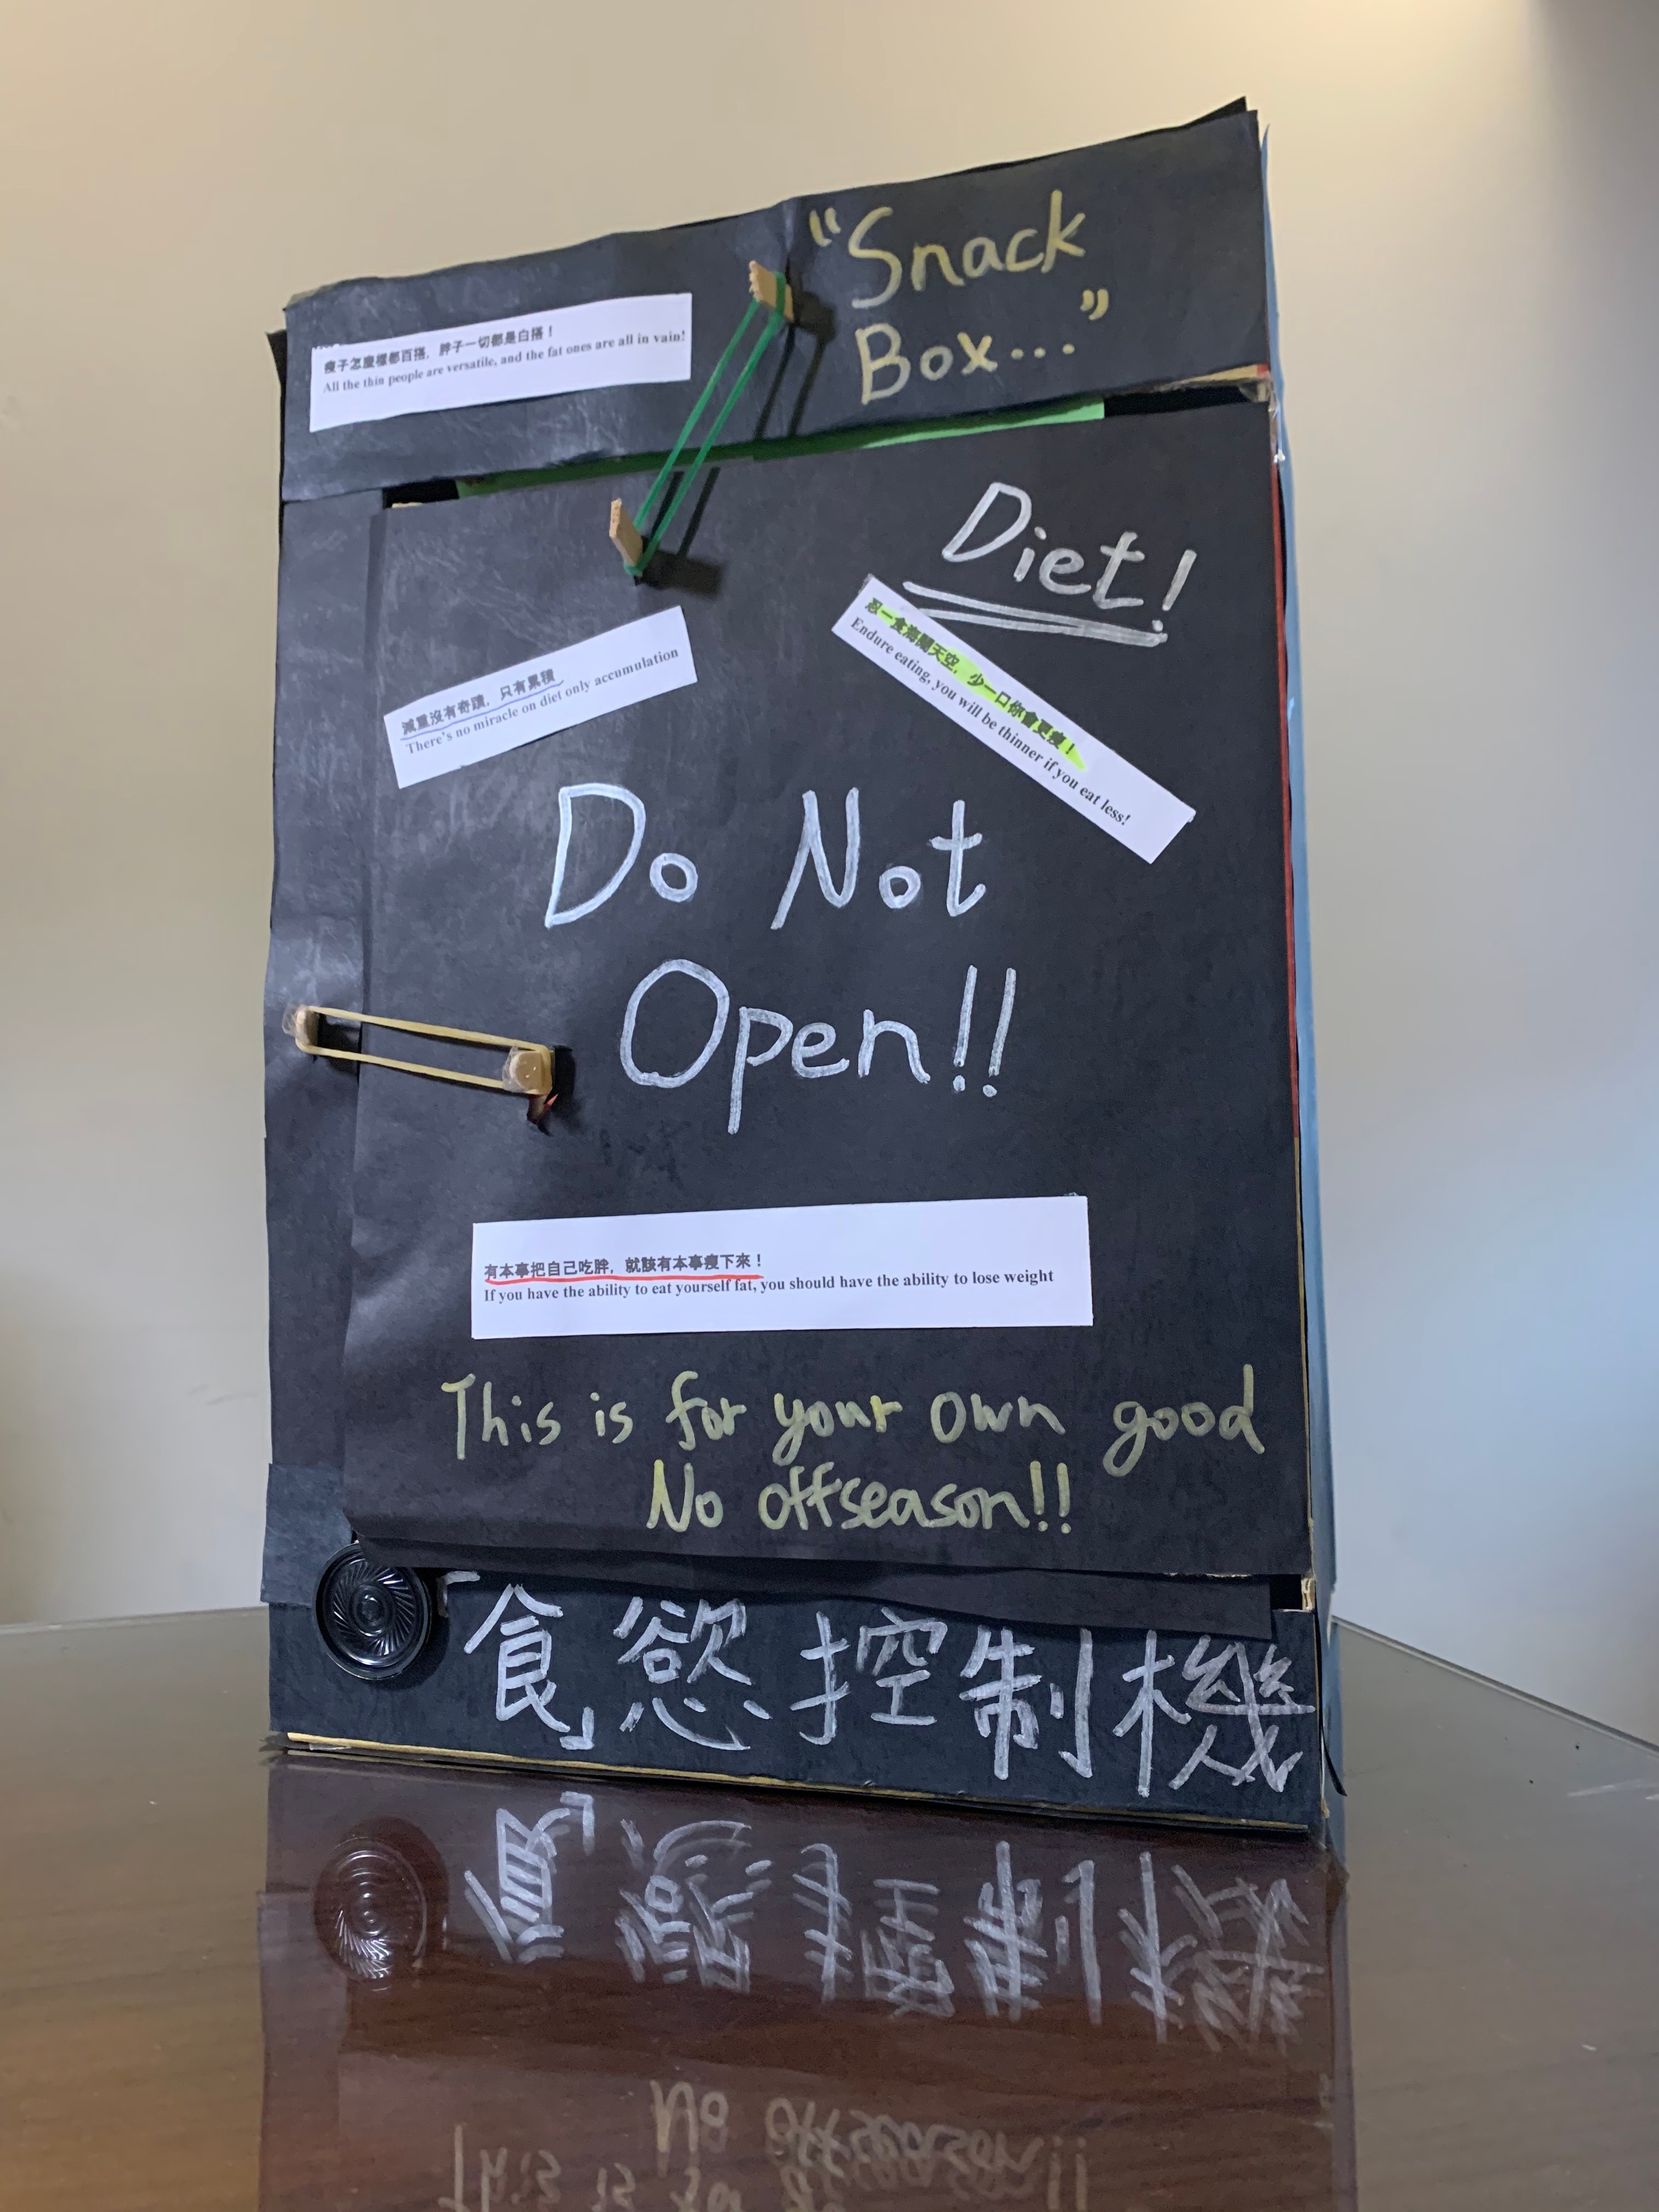 “Snack
Box...”
瘦子怎麼樣都百搭，胖子一切都是白搭！
All the thin people are versatile, and the fat ones are all in vain!
Diet!
忍一食海闊天空，少一口你會更瘦！
Endure eating, you will be thinner if you eat less!
減重沒有奇蹟，只有累積
There's no miracle on diet only accumulation
Do Not
Open!!
有本事把自己吃胖，就該有本事瘦下來！
If you have the ability to eat yourself fat, you should have the ability to lose weight
This is for your own good
No offseason!!
「食」慾控制機